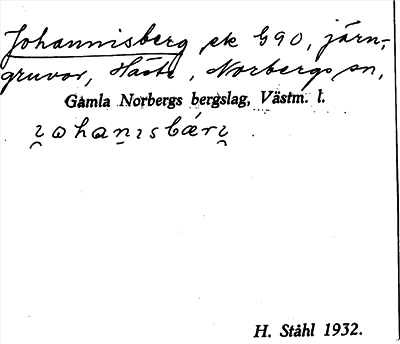 Johannisberg ek G90, järn-
gruvor, Häste, Norbergs sn,
Gamla Norbergs bergslag, Västm. l.
i̯ohan̠ɩsbǽri̯
H. Ståhl 1932.